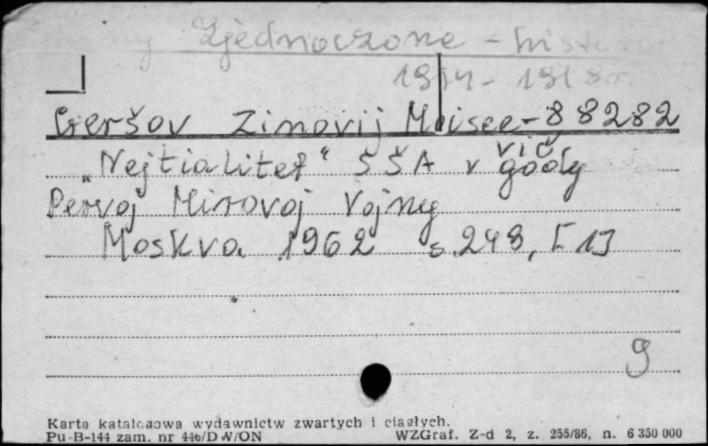 Zjednoczone - hist
1914-1918
Geršov Zinovij Moisee- 88282
vič
„Nejtralitet" SŠA v gody
Pervoj Mirovoj Vojny
Moskva 1962 s. 248, [1]
9
Karta katalogowa wydawnictw zwartych i ciągłych.
Pu-B-144 zam. nr 446/DW/ON WZGraf. Z-d 2, z. 255/86, n. 6 350 000